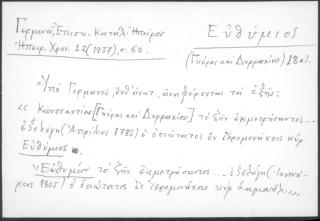 Γερμανοῦ, Ἐπισκ. Κατάλ. Ἠπείρου
Ἠπειρ. Χρον. 12 (1937), σ. 60.
Εὐθύμιος
(Γκόρας καὶ Δυρραχίου) 18 αἰ.
Ὑπὸ Γερμανοῦ, ἔνθ' ἀνωτ. ἀναφέρονται τὰ ἑξῆς:
« Κωνσταντίου [Γκόρας καὶ Δυρραχίου] τὸ ζῆν ἐκμετρήσαντος...
ἐξελέγη (Ἀπρίλιος 1783) ὁ ὁσιώτατος ἐν ἱερομονάχοις κὺρ
Εὐθύμιος.
"Εὐθυμίου τὸ ζῆν ἐκμετρήσαντος... ἐξελέγη (Ἰανου-
άριος 1805) ὁ ὁσιώτατος ἐν ἱερομονάχοις κὺρ Δαμιανός»